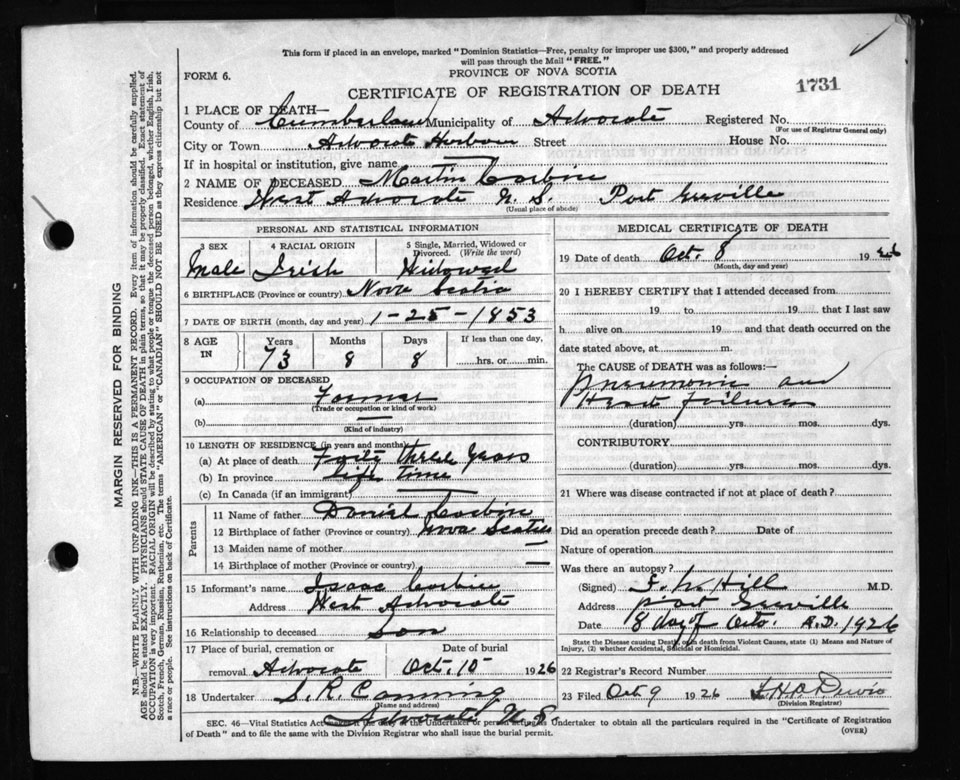 This form if placed in an envelope, marked "Dominion Statistics—Free, penalty for improper use $300," and properly addressed
will pass through the Mail "FREE."
FORM 6.
PROVINCE OF NOVA SCOTIA
CERTIFICATE OF REGISTRATION OF DEATH
1731
1 PLACE OF DEATH—
County of Cumberland Municipality of Advocate Registered No.
(For use of Registrar General only)
City or Town Advocate Harbour Street House No.
If in hospital or institution, give name —
2 NAME OF DECEASED Martin Corbin
Residence West Advocate N. S. Port Greville
(Usual place of abode)
PERSONAL AND STATISTICAL INFORMATION
3 SEX 4 RACIAL ORIGIN 5 Single, Married, Widowed or
Divorced. (Write the word)
Male Irish Widowed
6 BIRTHPLACE (Province or country) Nova Scotia
7 DATE OF BIRTH (month, day and year) 1-25-1853
8 AGE IN Years Months Days If less than one day,
73 8 8 hrs. or min.
9 OCCUPATION OF DECEASED
(a) Farmer
(Trade or occupation or kind of work)
(b) —
(Kind of industry)
10 LENGTH OF RESIDENCE (in years and months)
(a) At place of death Forty three Years
(b) In province Life time
(c) In Canada (if an immigrant) —
Parents
11 Name of father Daniel Corbin
12 Birthplace of father (Province or country) Nova Scotia
13 Maiden name of mother —
14 Birthplace of mother (Province or country) —
15 Informant's name Isaac Corbin
Address West Advocate
16 Relationship to deceased Son
17 Place of burial, cremation or Date of burial
removal Advocate Oct. 10 1926
18 Undertaker S. R. Canning
(Name and address)
Advocate N. S.
MEDICAL CERTIFICATE OF DEATH
19 Date of death Oct. 8 1926
(Month, day and year)
20 I HEREBY CERTIFY that I attended deceased from
19 to 19 that I last saw
h alive on 19 and that death occurred on
date stated above, at m.
The CAUSE of DEATH was as follows:—
Pneumonia and
Heart Failure
(duration) yrs. mos. dys.
CONTRIBUTORY.
(duration) yrs. mos. dys.
21 Where was disease contracted if not at place of death?
Did an operation precede death? Date of
Nature of operation
Was there an autopsy?
(Signed) F. W. Hill M.D.
Address Port Greville
Date 8 day of Oct. A.D. 1926
State the Disease causing Death, or in death from Violent Causes, state (1) Means and Nature of
Injury, (2) whether Accidental, Suicidal or Homicidal.
22 Registrar's Record Number
23 Filed Oct 9 1926
(Division Registrar)
SEC. 46—Vital Statistics Act the duty of the Undertaker or person acting as Undertaker to obtain all the particulars required in the "Certificate of Registration
of Death" and to file the same with the Division Registrar who shall issue the burial permit.
(OVER)
MARGIN RESERVED FOR BINDING
N.B.—WRITE PLAINLY WITH UNFADING INK—THIS IS A PERMANENT RECORD. Every item of information should be carefully supplied.
AGE should be stated EXACTLY. PHYSICIANS should STATE CAUSE OF DEATH in plain terms, so that it may be properly classified. Exact statement of
OCCUPATION is very important. RACIAL ORIGIN will be described by stating to what people or tongue the deceased person belonged, whether English, Irish,
Scotch, French, German, Russian, Ruthenian, etc. The terms "AMERICAN" or "CANADIAN" SHOULD NOT BE USED as they express citizenship but not
a race or people. See instructions on back of Certificate.